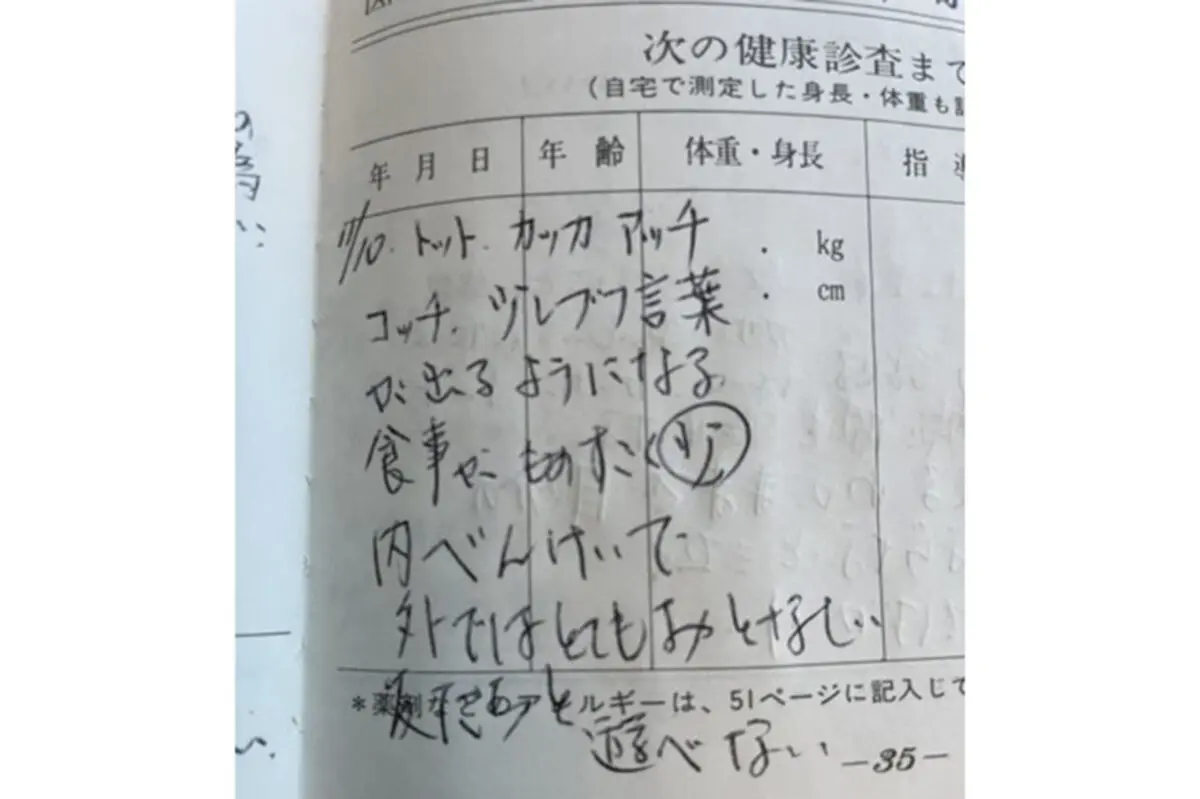 次の健康診査まで
(自宅で測定した身長・体重も
年月日 年齢 体重・身長 指導
11/10. トット. カッカ アッチ . kg
コッチ. ツレブツ言葉 . cm
が出るようになる.
食事がものすごく
内べんけいで
外ではとてもおとなしい
*薬剤などのアレルギーは、51ページに記入して
友だちと
遊べない
-35-